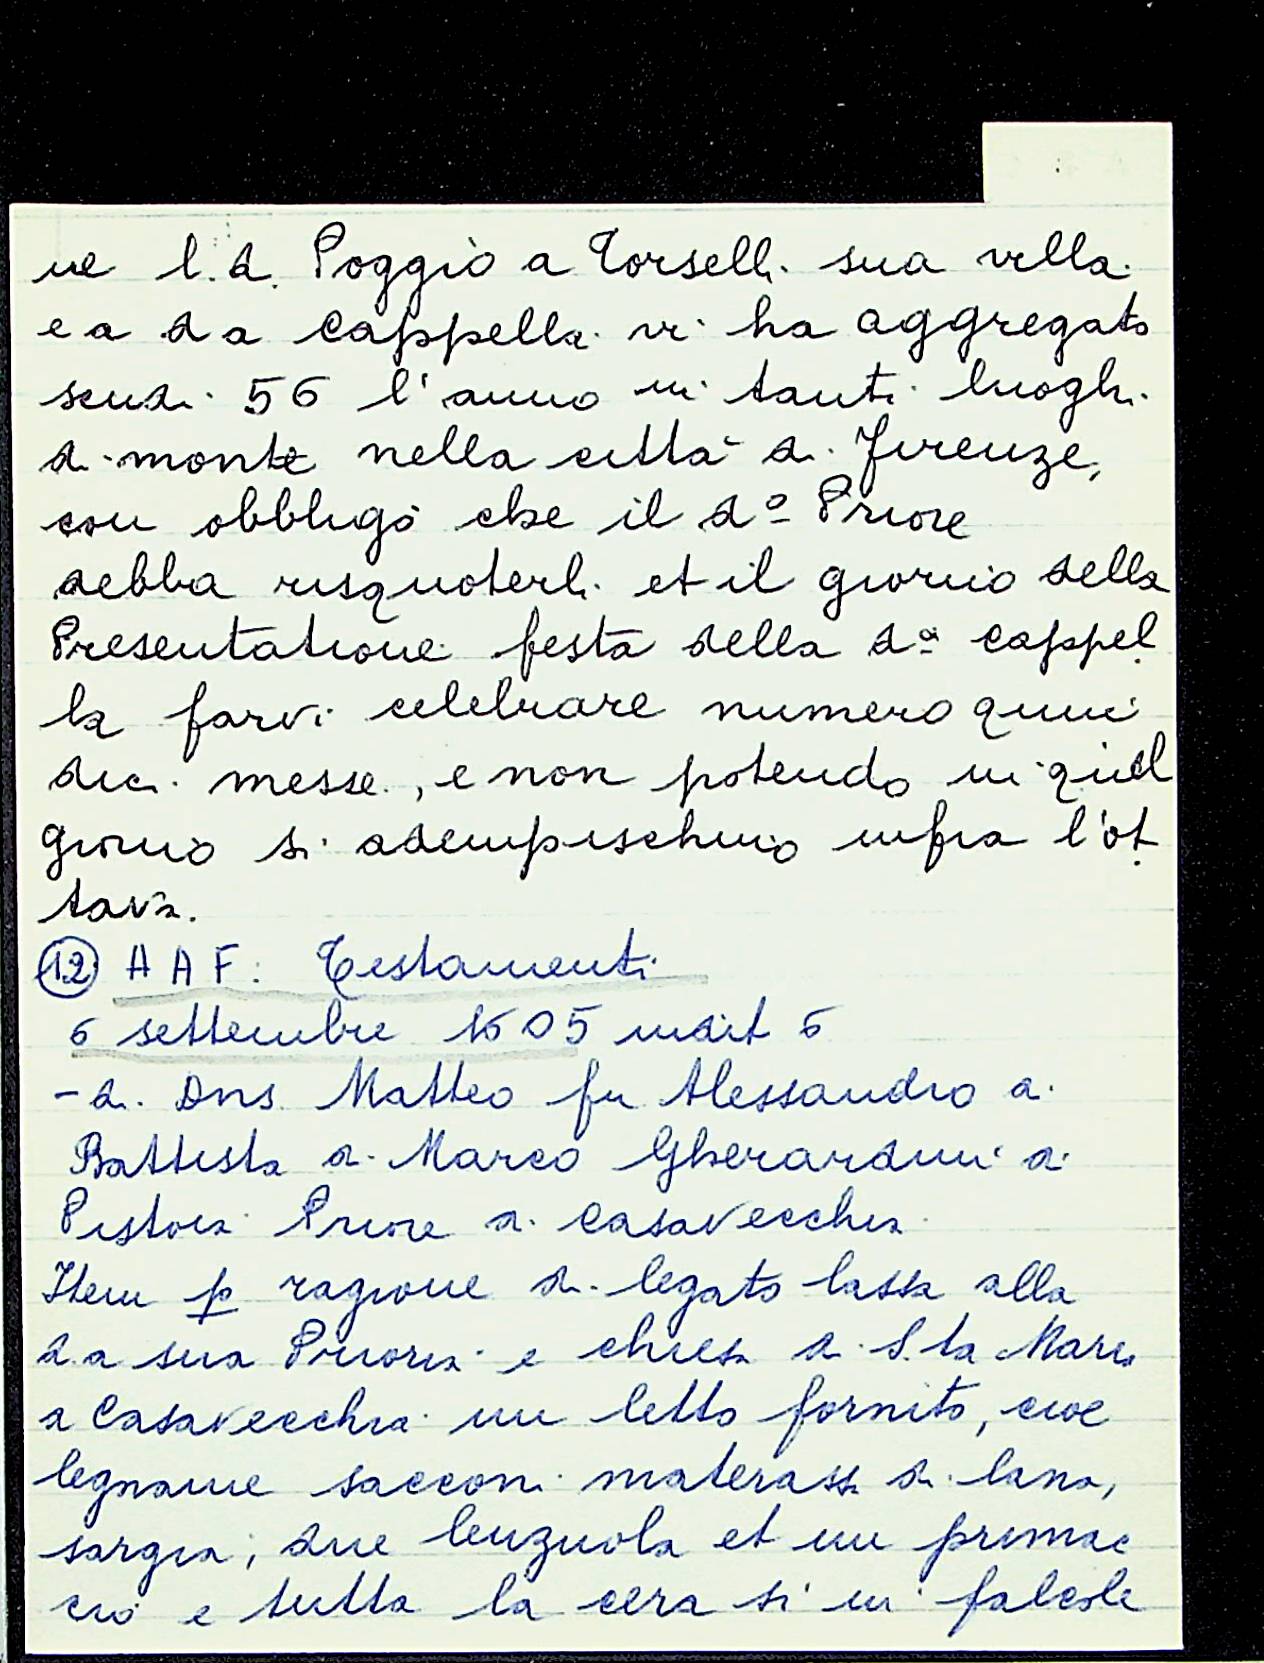 ne l.d. Poggio a Torselli sua villa
e a da cappella vi ha aggregato
scudi 56 l'anno in tanti luoghi
di monte nella città di Firenze,
con obbligo che il dº Priore
debba risquoterli et il giorno della
Presentatione festa della dª cappel
la farvi celebrare numero quin
dici messe, e non potendo in quel
giorno si adempischino infra l'ot
tava.
12 AAF: Testamenti
6 settembre 1605 indit 6
- di Dns Matteo fu Alessandro di
Battista di Marco Gherardini di
Pistoia Priore di Casavecchia
Item p ragione di legato lassa alla
d.a sua Prioria e chiesa di S.ta Maria
a Casavecchia un letto fornito, cioe
legname sacconi materassi di lana,
sargia, due lenzuola et un primac
cio e tutta la cera si in falcole